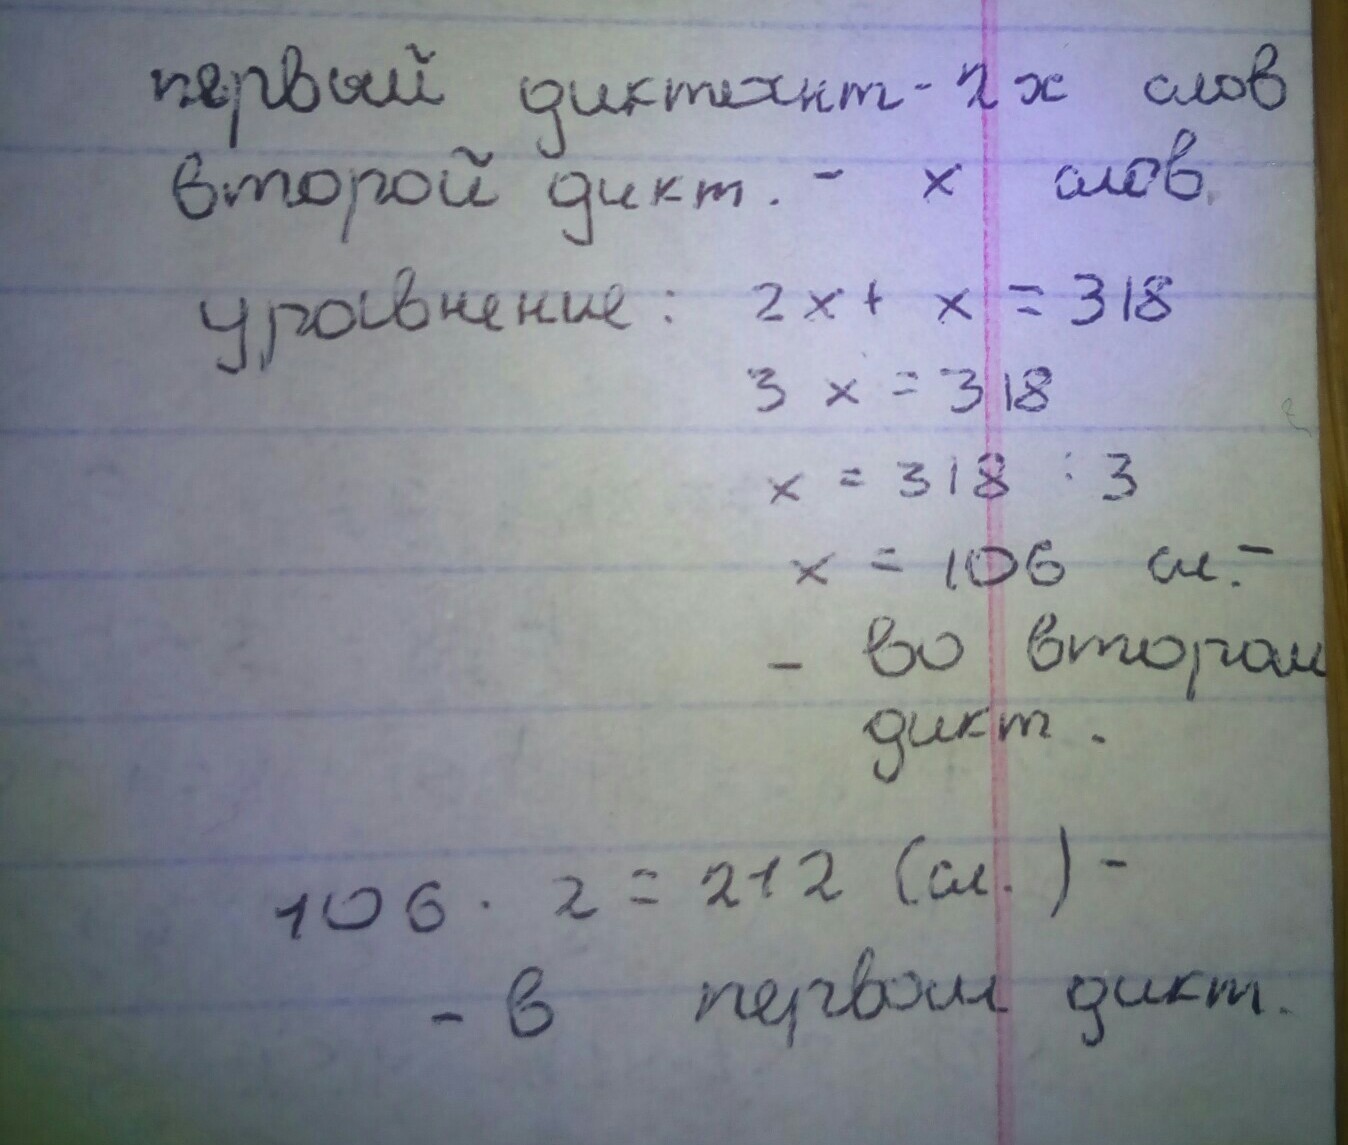 первый диктант - 2x слов
второй дикт. - x слов.
уравнение: 2x + x = 318
3x = 318
x = 318 : 3
x = 106 сл. -
- во втором
дикт.
106 · 2 = 212 (сл.) -
- в первом дикт.